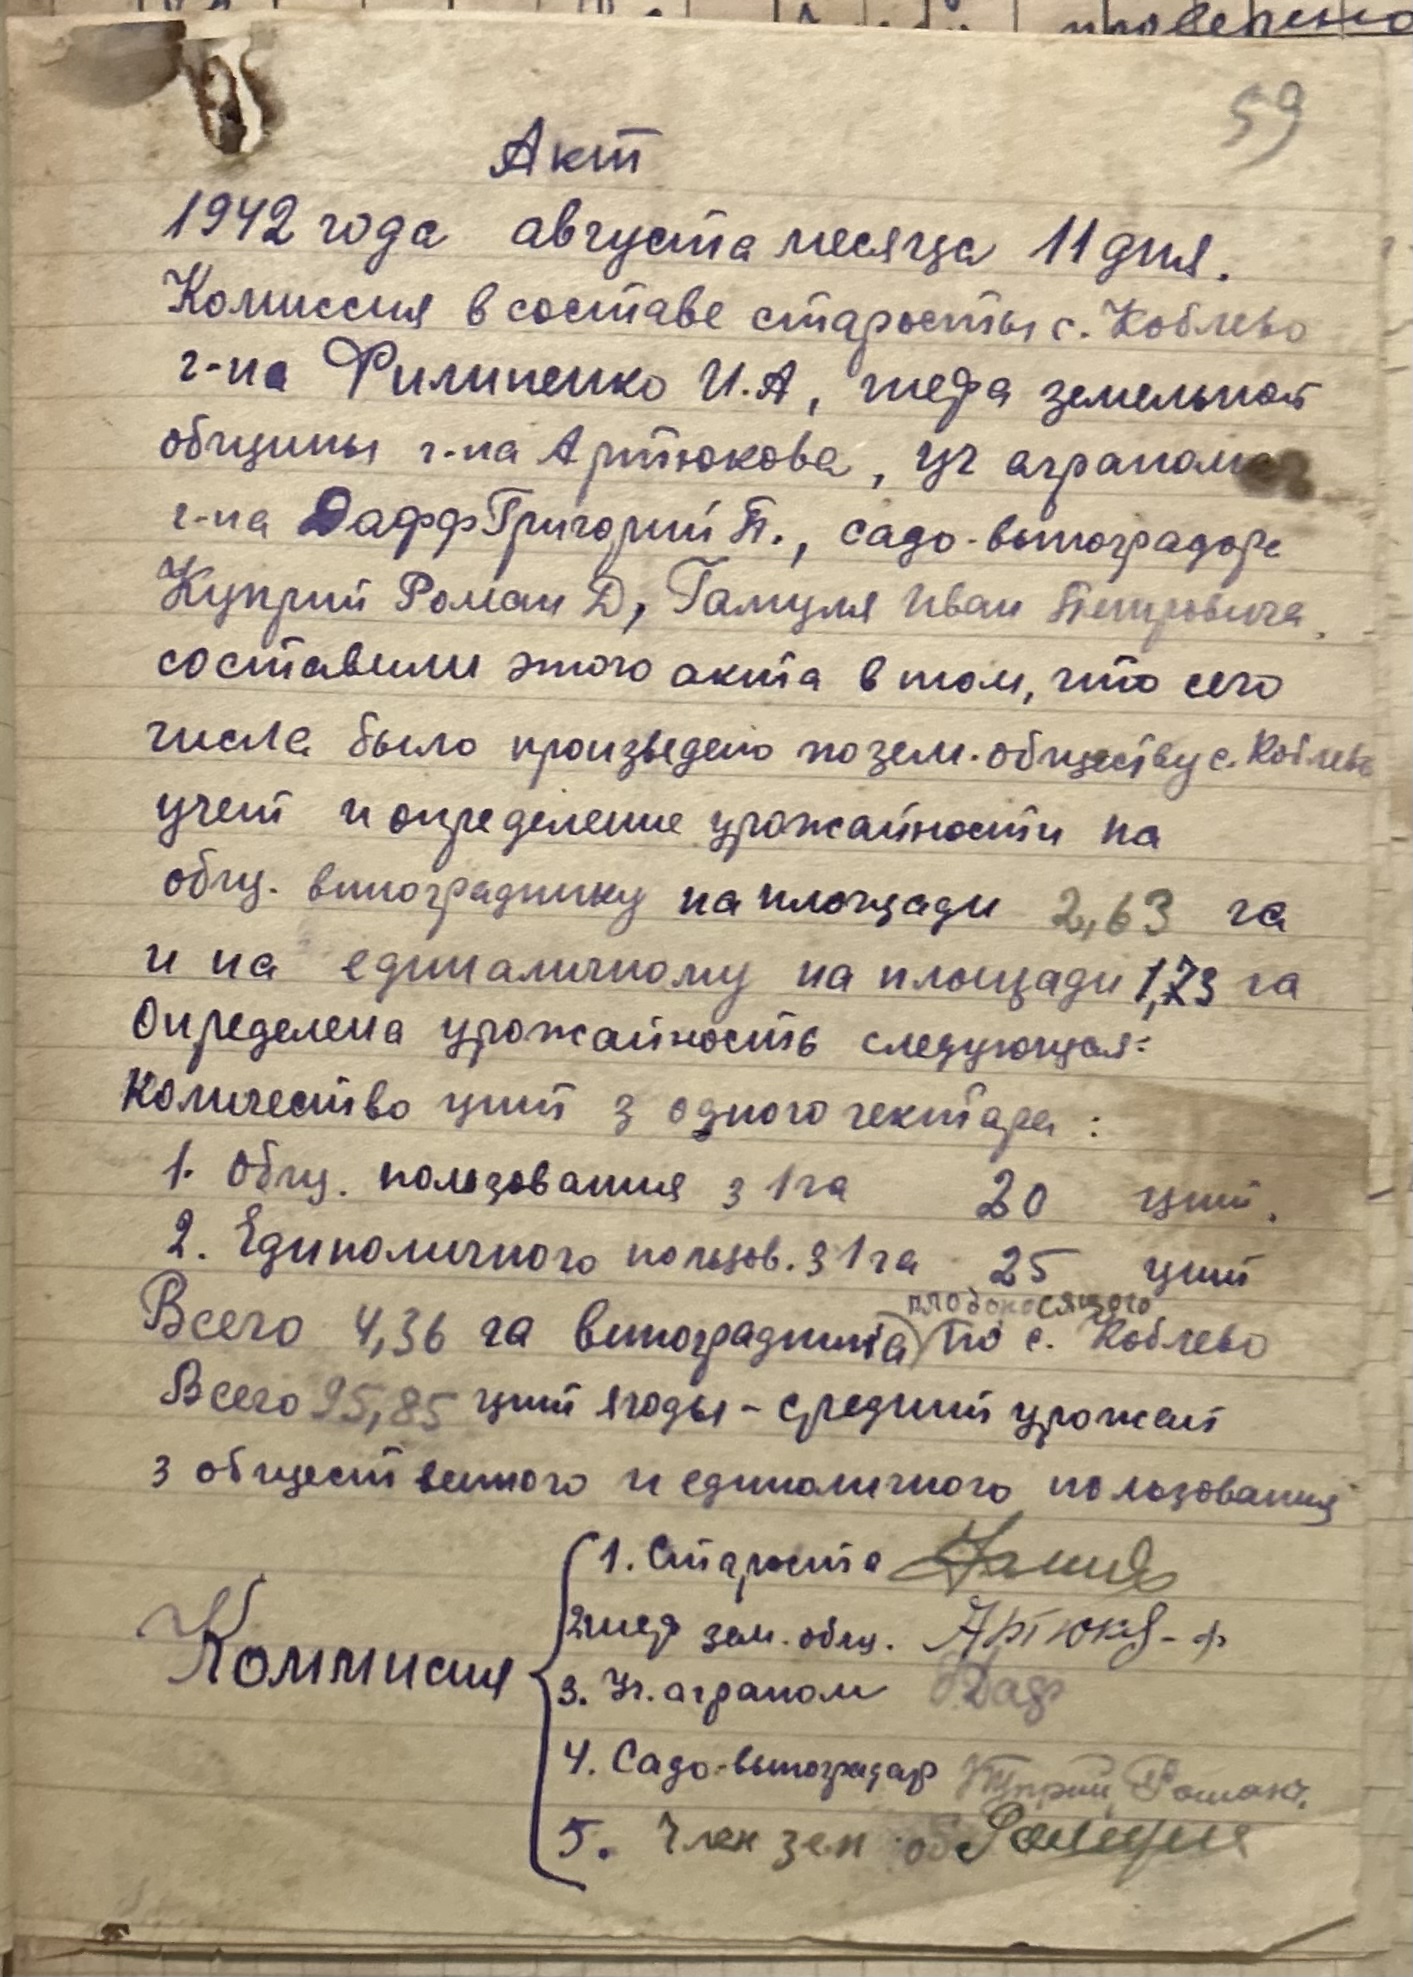 проверено
59
Акт
1942 года августа месяца 11 дня.
Комиссия в составе старосты с. Коблево
г-на Филипенко И.А, шефа земельной
общины г-на Артюкова, уч агранома
г-на Дафф Григорий П., садо-виноградаре
Куприй Роман Д, Гамуля Иван Петровича.
составили этого акта в том, что сего
числа было произведено по зем. обществу с. Коблево
учет и определение урожайности на
общ. винограднику на площади 2,63 га
и на единаличному на площади 1,73 га
Определена урожайность следующая:
Количество цнт з одного гектара:
1. Общ. ползования з 1 га 20 цнт.
2. Единоличного пользов. з 1 га 25 цнт
плодоносящого
Всего 4,36 га виноградника по с. Коблево
Всего 95,85 цнт ягоды - средний урожай
з общественного и единоличного ползования
Коммисия
1. Староста
2 шеф зем. общ. Артюков-ф
3. Уч. аграном Даф
4. Садо-виноградар Куприй Роман.
5. Член зем об